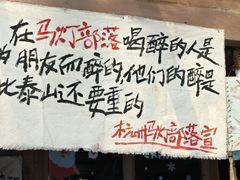 在马灯部落喝醉的人是
为朋友而醉的,他们的醉是
比泰山还要重的
杭州马灯部落宣